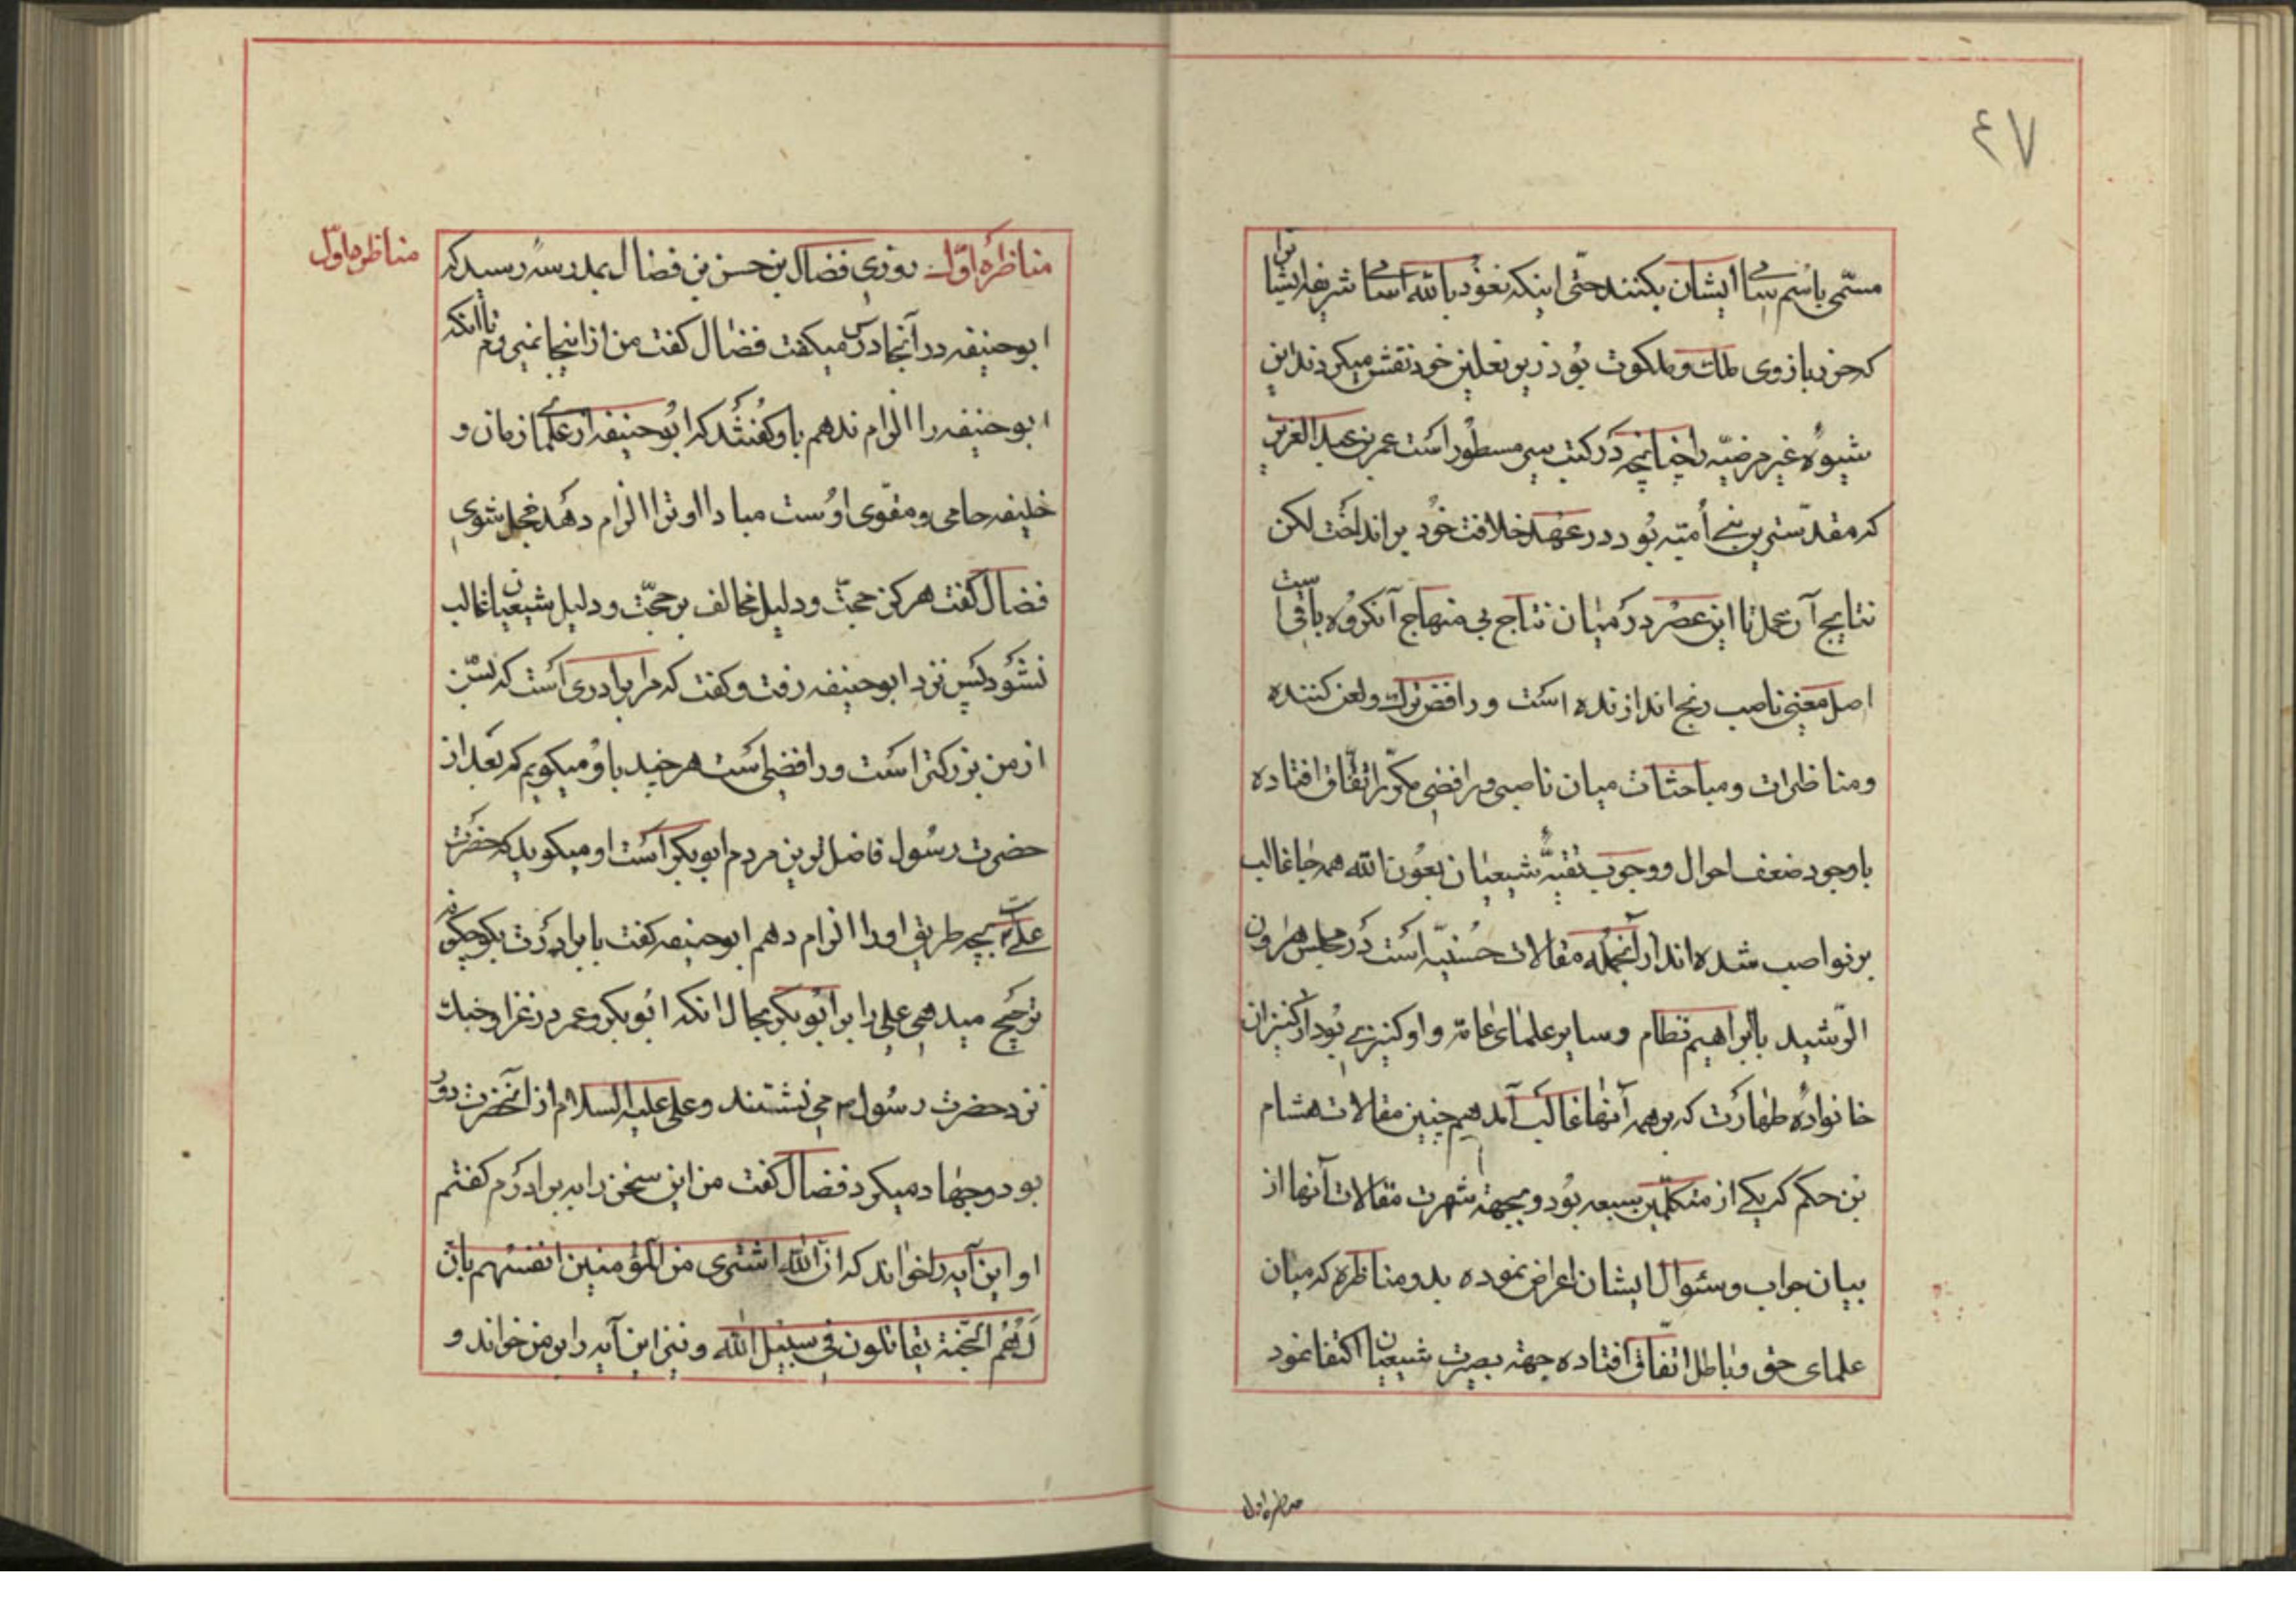 ٤٧
مسمّی باسم سامی ایشان بکنند حتّی اینکه نعوذ بالله اسامی شریفه ایشان را
که حرز بازوی ملك و ملکوت بود زیر نعلین خود نقش میکردند این
شیوهٔ غیر مرضیّه را چنانچه در کتب سیر مسطور است عمر بن عبد العزیز
که مقدّس‌ترین بنی أمیّه بود در عهد خلافت خود برانداخت لکن
نتایج آن عمل تا این عصر در میان نتاج بی منهاج آنگروه باقی است
اصل معنی ناصب رنج اندازنده است و رافض ترك و لعن کننده
و مناظرات و مباحثات میان ناصبی و رافضی مکرّر اتّفاق افتاده
با وجود ضعف احوال و وجوب تقیّه شیعیان بعون الله همه جا غالب
بر نواصب شده‌اند از آنجمله مقالات حسنیّه است در مجلس هارون
الرّشید با ابراهیم نظام و سایر علمای عامّه و او کنیزی بود از کنیزان
خانوادهٔ طهارت که بر همه آنها غالب آمد همچنین مقالات هشام
بن حکم که یکی از متکلّمین شیعه بود و بجهة شهرت مقالات آنها از
بیان جواب و سئوال ایشان اعراض نموده بدو مناظره که میان
علمای حق و باطل اتّفاق افتاده جهة بصیرت شیعیان اکتفا نمود
مناظره اول
مناظره اوّل
مناظرهٔ اوّل روزی فضال بن حسن بن فضال بمدرسه رسید که
ابو حنیفه در آنجا درس میگفت فضال گفت من از اینجا نمیروم تا انکه
ابو حنیفه را الزام ندهم باو گفتند که ابو حنیفه از علمای زمان و
خلیفه حامی و مقوّی اوست مبادا او ترا الزام دهد خجل شوی
فضال گفت هرگز حجّت و دلیل مخالف بر حجّت و دلیل شیعیان غالب
نشود پس نزد ابو حنیفه رفت و گفت که مرا برادری است که بسنّ
از من بزرکتر است و رافضی است هر چند باو میگویم که بعد از
حضرت رسول فاضل‌ترین مردم ابوبکر است او میگوید که حضرت
علی است بچه طریق او را الزام دهم ابو حنیفه گفت با برادرت بگو چگونه
ترجیح میدهی علی را بر ابوبکر بحال انکه ابوبکر و عمر در غزا و جنك
نزد حضرت رسول ص می نشستند و علی علیه السلام از آنحضرت دور
بود و جهاد میکرد فضال گفت من این سخن را به برادرم گفتم
او این آیه را خواند که انّ الله اشتری من المؤمنین انفسهم بانّ
لهم الجّنة یقاتلون فی سبیل الله و نیز این آیه را بر من خواند و